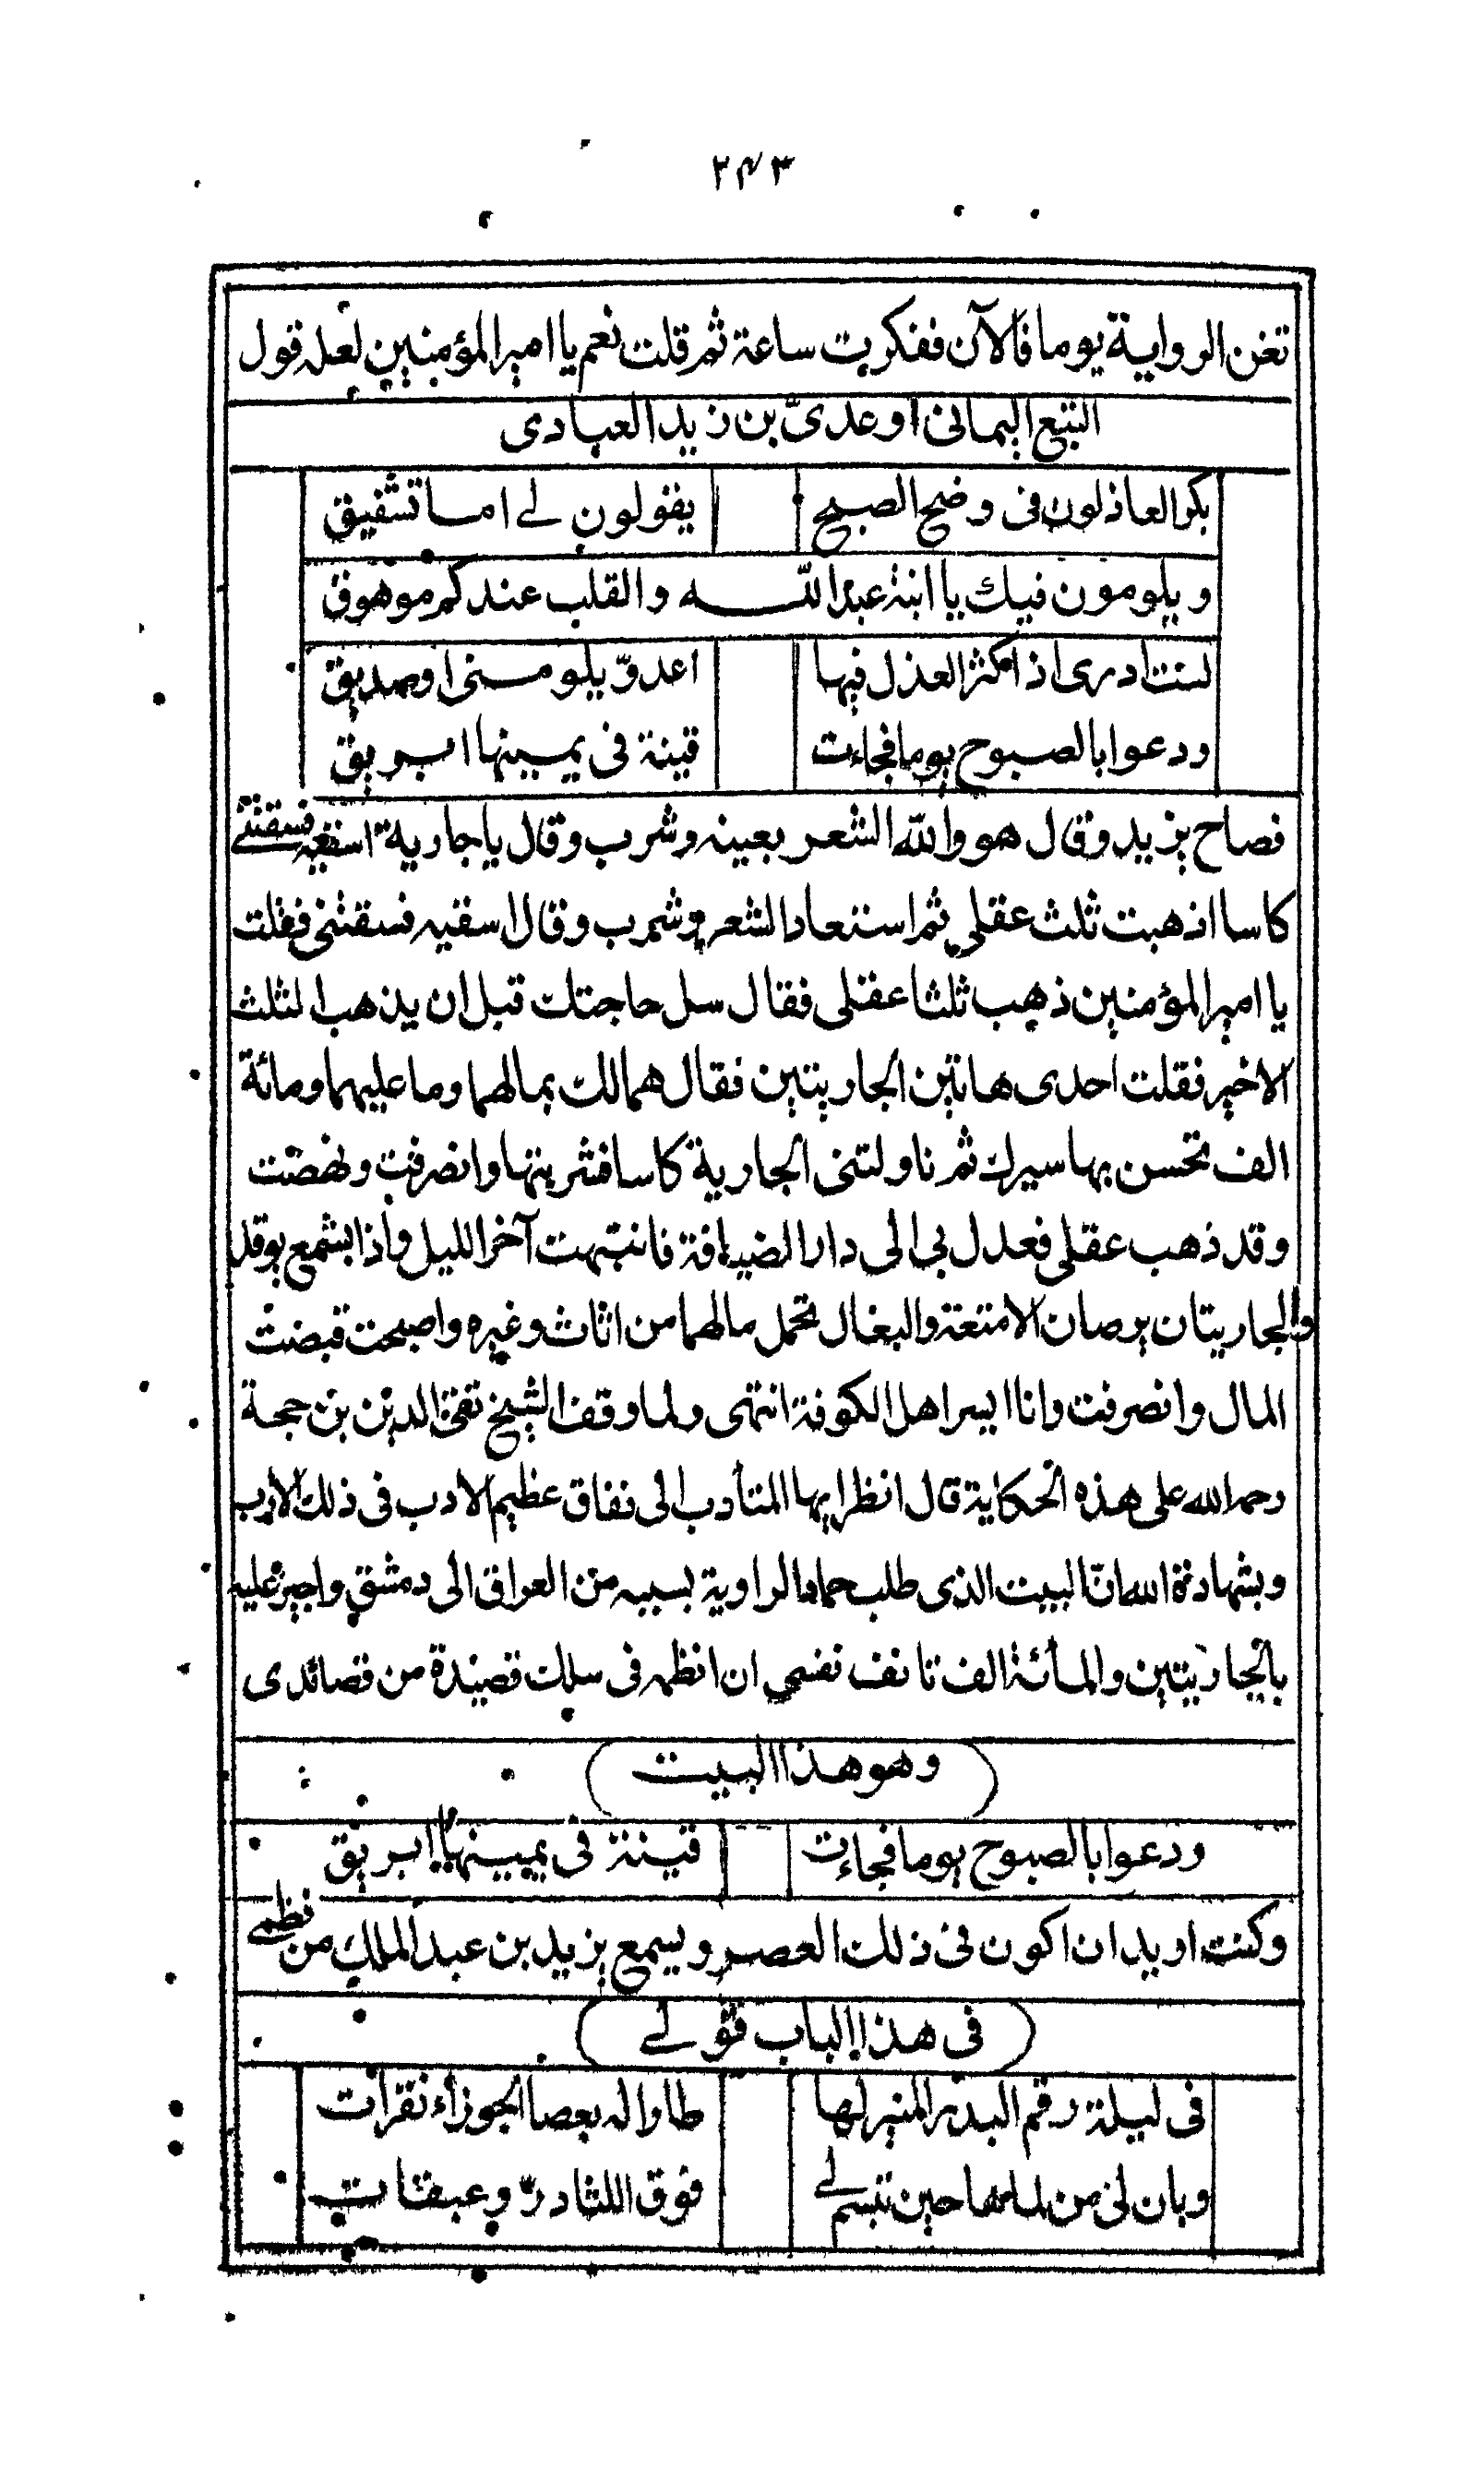 ٢٤٣
تغن الرواية يوما فالآن ففكرت ساعة ثم قلت نعم يا امير المؤمنين لعله قول
التبع اليمانى او عدىّ بن زيد العبادى
بكر العاذلون فى وضح الصبح يقولون لے اما تشفيق
ويلومون فيك يا ابنة عبد اللّه والقلب عندكم موهوق
لست ادرى اذ اكثر العذل فيها اعدوّ يلومنى او صديق
ودعوا بالصبوح يوما فجاءت قينة فى يمينها ابريق
فصاح يزيد وقال هو واللّه الشعر بعينه وشرب وقال يا جارية اسقيه فسقتنے
كاسا اذهبت ثلث عقلى ثم استعاد الشعر وشرب وقال اسقيه فسقتنى فقلت
يا امير المؤمنين ذهب ثلثا عقلى فقال سل حاجتك قبل ان يذهب الثلث
الاخير فقلت احدى هاتين الجاريتين فقال هما لك بما لهما وما عليهما ومائة
الف تحسن بها سيرك ثم ناولتنى الجارية كاسا فشربتها وانصرفت ونهضت
وقد ذهب عقلى فعدل بى الى دار الضيافة فانتبهت آخر الليل واذا بشمع يوقد
والجاريتان يرصان الامتعة والبغال تحمل ما لهما من اثاث وغيره واصبحت قبضت
المال وانصرفت وانا ايسر اهل الكوفة انتهى ولما وقف الشيخ تقى الدين بن حجة
رحمه الله على هذه الحكاية قال انظر ايها المتأدب الى نفاق عظيم الادب فى ذلك الادب
وبشهادة الله انّ البيت الذى طلب حماد الراوية بسببه من العراق الى دمشق واجيز عليه
بالجاريتين والمائة الف تانف نفسى ان انظمه فى سلك قصيدة من قصائدى
(وهو هذا البيت)
ودعوا بالصبوح يوما فجاءت قينة فى يمينها ابريق
وكنت اريد ان اكون فى ذلك العصر ويسمع يزيد بن عبد الملك من نظمے
(فى هذا الباب قولے)
فى ليلة رقم البدر المنير لها طارا له بعصا الجوزاء نقرات
وبان لى من لماها حين تبسم لے فوق اللثا درّ وعبقات